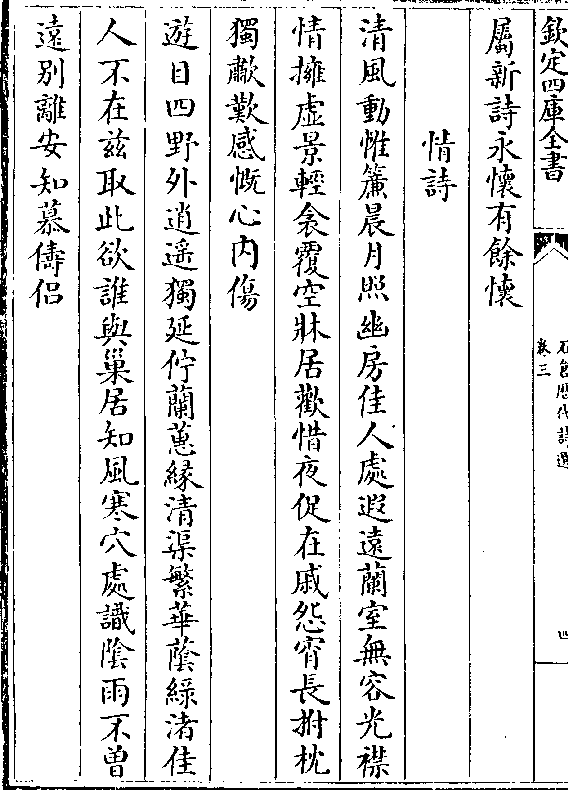 欽定四庫全書
石倉歷代詩選
卷三
四
屬新詩永懷有餘懷
情詩
清風動帷簾晨月照幽房佳人處遐遠蘭室無容光襟
情擁虛景輕衾覆空牀居歡惜夜促在戚怨宵長拊枕
獨歗歎感慨心内傷
遊目四野外逍遥獨延佇蘭蕙緣清渠繁華蔭綠渚佳
人不在兹取此欲誰與巢居知風寒穴處識陰雨不曽
遠别離安知慕儔侣